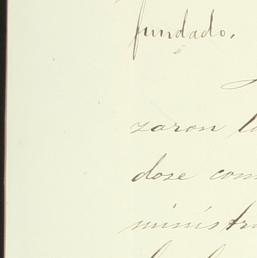 fundado.
zaron l
dose com
ministra